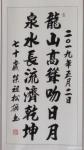 二〇一九年元月二日
龍山高聳吻日月
泉水長流濟乾坤
七十叟